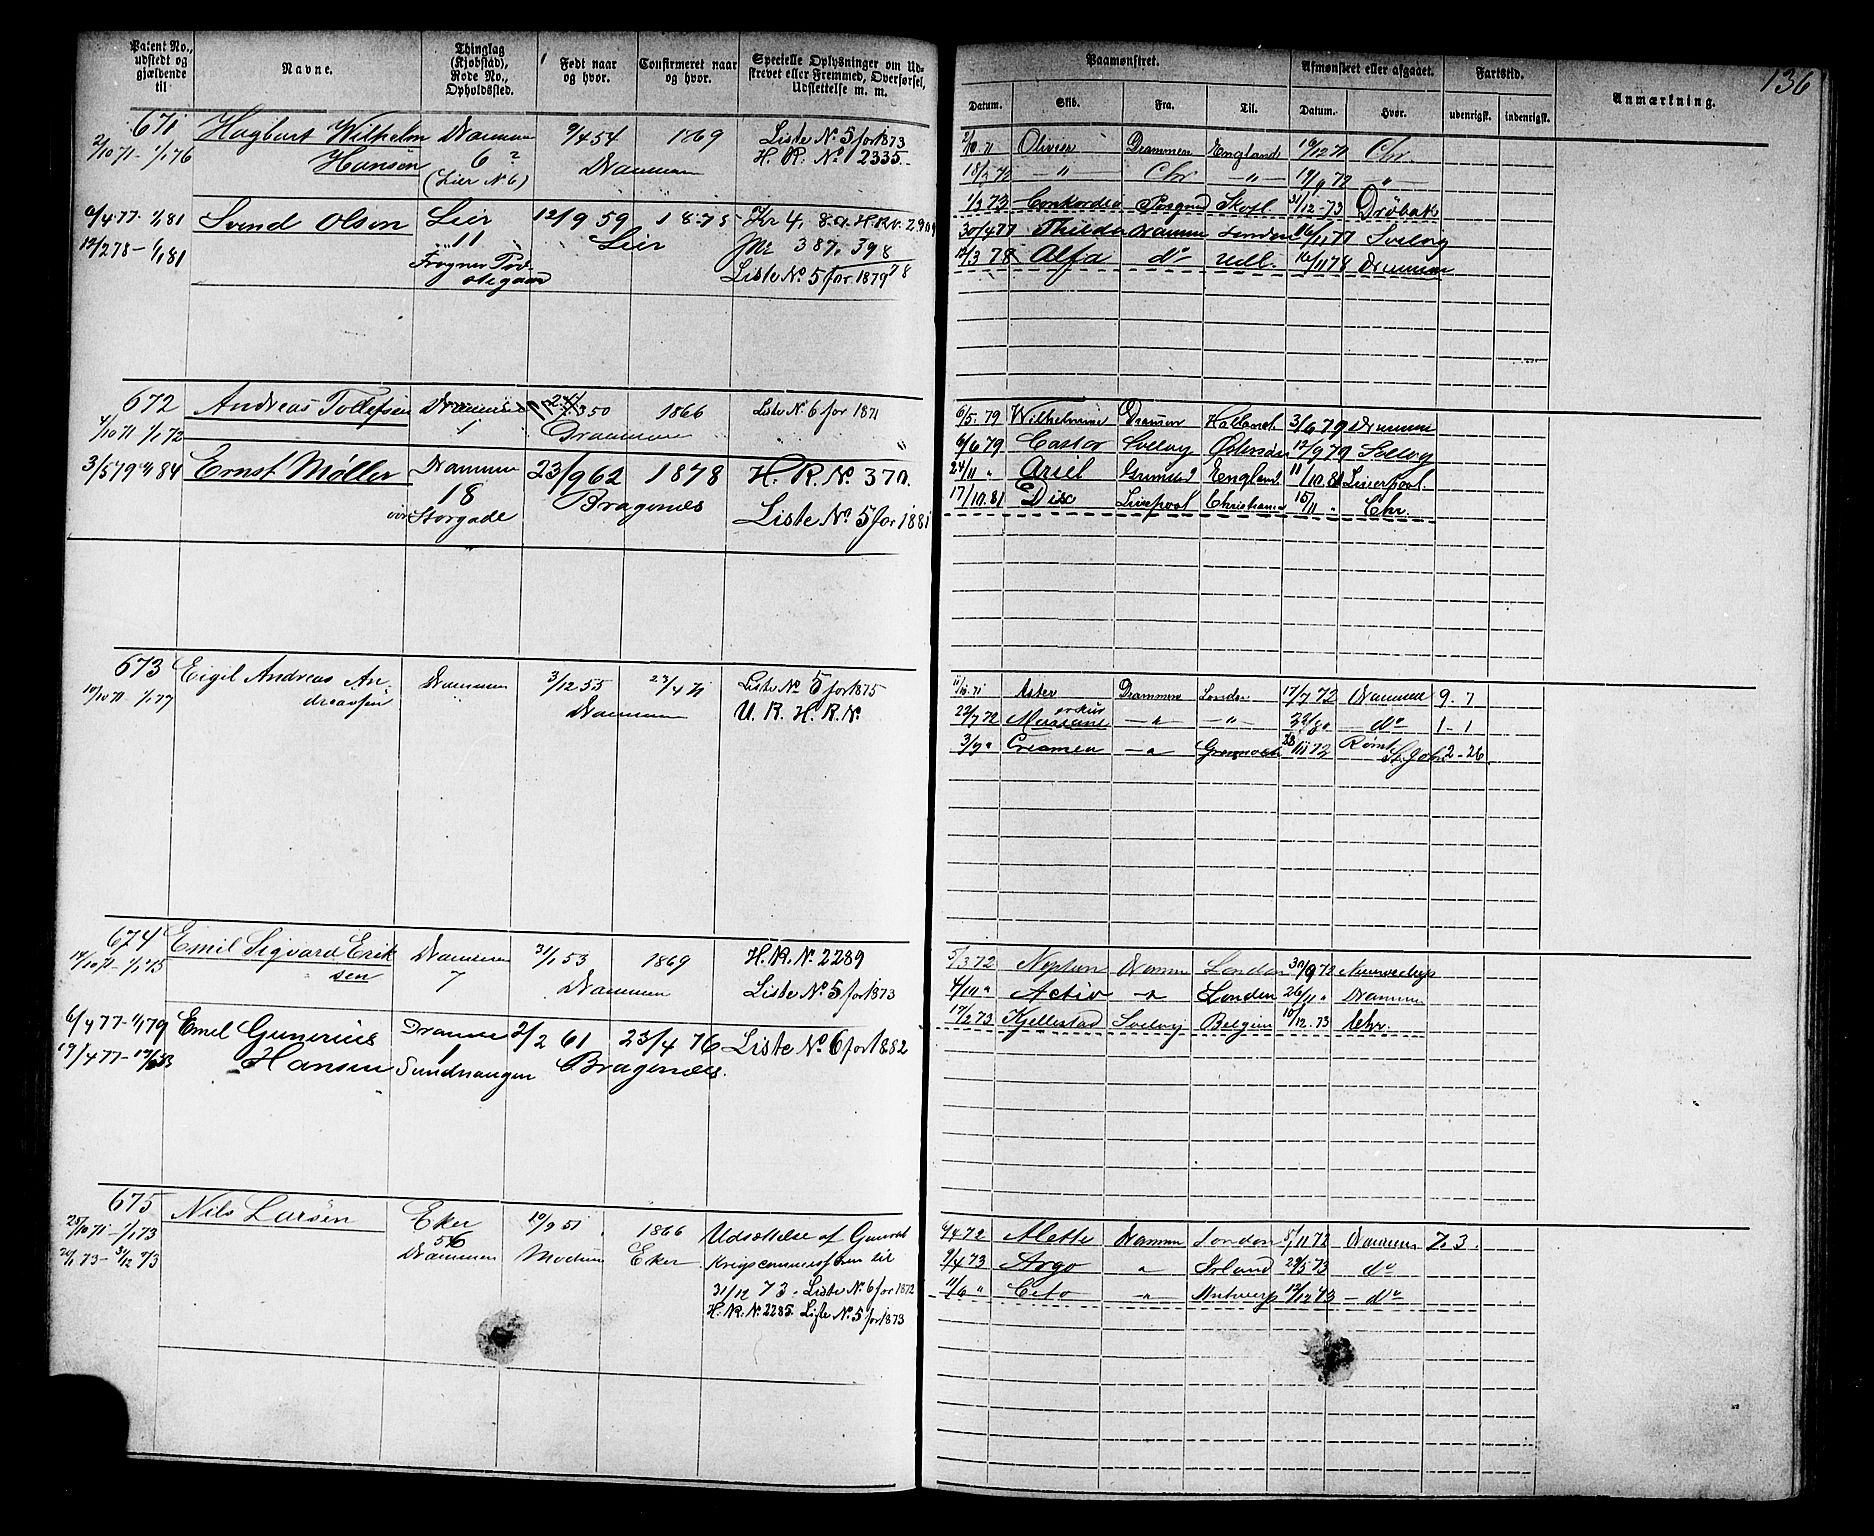 136
Patent No., udstedt og gjældende til
Navne.
Thinglag (Kjøbstad), Rode No., Opholdssted.
Født naar og hvor.
Confirmeret naar og hvor.
Specielle Oplysninger om Udskrevet eller Fremmed, Overførsel, Udslettelse m. m.
Paamønstret.
Afmønstret eller afgaaet.
Fartstid.
Anmærkning.
Datum. Skib. Fra. Til. Datum. Hvor. udenrigsk. indenrigsk.
671 Hagbart Wilhelm Drammen 9/4 54 1869 Liste No 5 for 1873
2/10 71 - 1/1 76 Hansen 6 Drammen H. R. No 2335.
(Lier No 6)
2/10 71 Olivier Drammen England 19/12 71 Chr.
18/2 72 — " — Chr — " — 19/9 72 "
1/2 73 Conkordia Porsgrund Skotl 31/12 73 Drøbak
6/4 77 - 1/1 81 Svend Olsen Lier 12/9 59 1875 Kr 4, 8 a. H.R.No. 2909
12/2 78 - 1/1 81 11 Lier 387, 398
Frogner Liste No 5 for 1879
30/4 77 Thilda Drammen London 16/11 77 Svelvig
12/3 78 Alfa do Udl. 16/11 78 Drammen
672 Andreas Tollefsen Drammen 50 1866 Liste No 6 for 1871
4/10 71 - 1/1 72 1 Drammen
3/5 79 84 Ernst Møller Drammen 23/9 62 1878 H. R. No 370.
18 Bragernes
Storgade Liste No 5 for 1881
6/5 79 Wilhelmine Drammen Holland 3/6 79 Drammen
6/6 79 Castor Svelvig 12/9 79 Svelvig
24/11 " Ariel Grimstad England 11/10 81 Liverpool.
17/10 81 Disc Liverpool Christiania 15/11 " Chr.
673 Eigil Andreas An- Drammen 3/12 55 23/4 71 Liste No 5 for 1875
10/10 71 - 1/1 77 dreassen Drammen U. R. H. R. No
11/10 71 Aster Drammen London 17/7 72 Drammen 9. 7
22/7 72 — " — — " — do 1 - 1
3/9 " Crismea — " 28/11 72 Rømt St. John 2 - 26
674 Emil Sigvard Erik Drammen 31/1 53 1869 H. R. No 2289
14/10 71 - 1/1 75 sen 7 Drammen Liste No 5 for 1873
5/3 72 Neptun Drammen London 30/9 72
4/10 " Activ — " London 26/11 " Drammen
17/2 73 Kjellestad Svelvig Belgien 10/12 73 Chr.
6/4 77 - 1/1 79 Emil Gunerius Drammen 2/2 61 23/4 76 Liste No 6 for 1882
19/4 77 - Hansen 1 Bragernes.
Sundhaugen
675 Nils Larsen Eker 10/9 51 1866 Udsættelse af Gunvald
25/10 71 - 1/1 73 56 Modum Eker Krigscommissæren til
20/1 73 - 31/12 73 Drammen 31/12 73 - Liste No 6 for 1872
H. R. No 2285 Liste No 5 for 1873
6/4 72 Alette Drammen London 5/11 72 Drammen 7. 3.
9/4 73 Argo " Irland 29/5 73 do
11/6 " Ceto — " Antwerp 12/12 73 — do